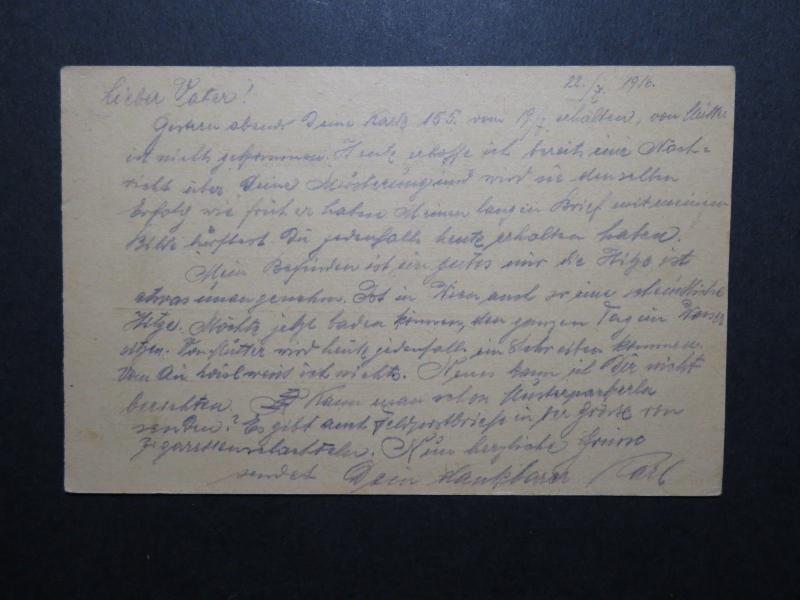 22./7. 1916.
Lieber Vater!
Gestern abends Deine Karte 155. vom 19/7. erhalten, von Mutter
ist nichts gekommen. Heute erhoffe ich bereits eine Nach=
richt über Deine Musterung und wird sie denselben
Erfolg wie früher haben. Meinen langen Brief mit meinem
Bilde dürftest Du jedenfalls heute erhalten haben.
Mein Befinden ist ein gutes nur die Hitze ist
etwas unangenehm. Ist in Wien auch so eine scheussliche
Hitze. Möchte jetzt baden können, den ganzen Tag im Wasser
sitzen. Von Mutter wird heute jedenfalls ein Schreiben kommen.
Von weiss ich nichts. Neues kann ich Dir nicht
berichten. Kann man schon Musterpackerln
senden? Es gibt auch Feldpostbriefe in der Grösse von
Zigarettenschachteln. Nun herzliche Grüsse
sendet Dein dankbarer Karl